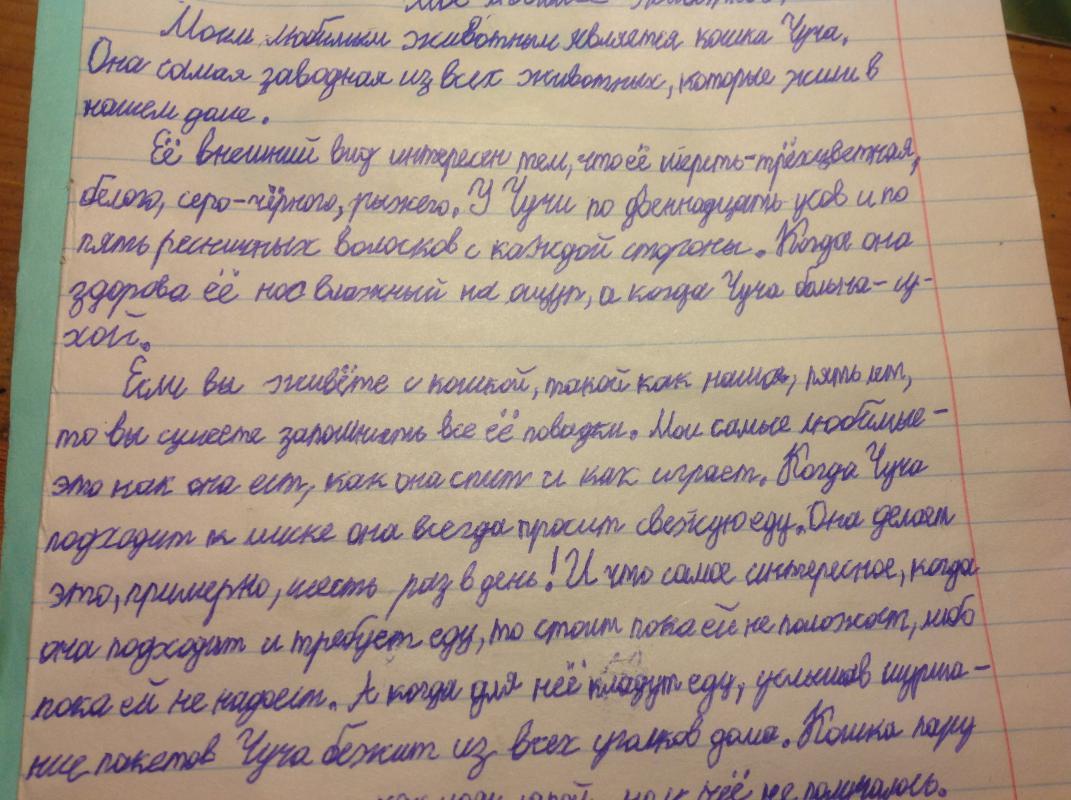 Моё любимое животное.
Моим любимым животным является кошка Чуча.
Она самая заводная из всех животных, которые жили в
нашем доме.
Её внешний вид интересен тем, что её шерсть-трёхцветная,
белого, серо-чёрного, рыжего. У Чучи по двеннадцать усов и по
пять ресничных волосков с каждой стороны. Когда она
здорова её нос влажный на ощуп, а когда Чуча больна- су-
хой.
Если вы живёте с кошкой, такой как наша, пять лет,
то вы сумеете запомнить все её повадки. Мои самые любимые-
это как она ест, как она спит и как играет. Когда Чуча
подходит к миске она всегда просит свежую еду. Она делает
это, примерно, шесть раз в день! И что самое интересное, когда
она подходит и требует еду, то стоит пока ей не положат, либо
пока ей не надоест. А когда для неё кладут еду, услышав шурша-
ние пакетов Чуча бежит из всех уголков дома. Кошка пару
у неё не получалось.